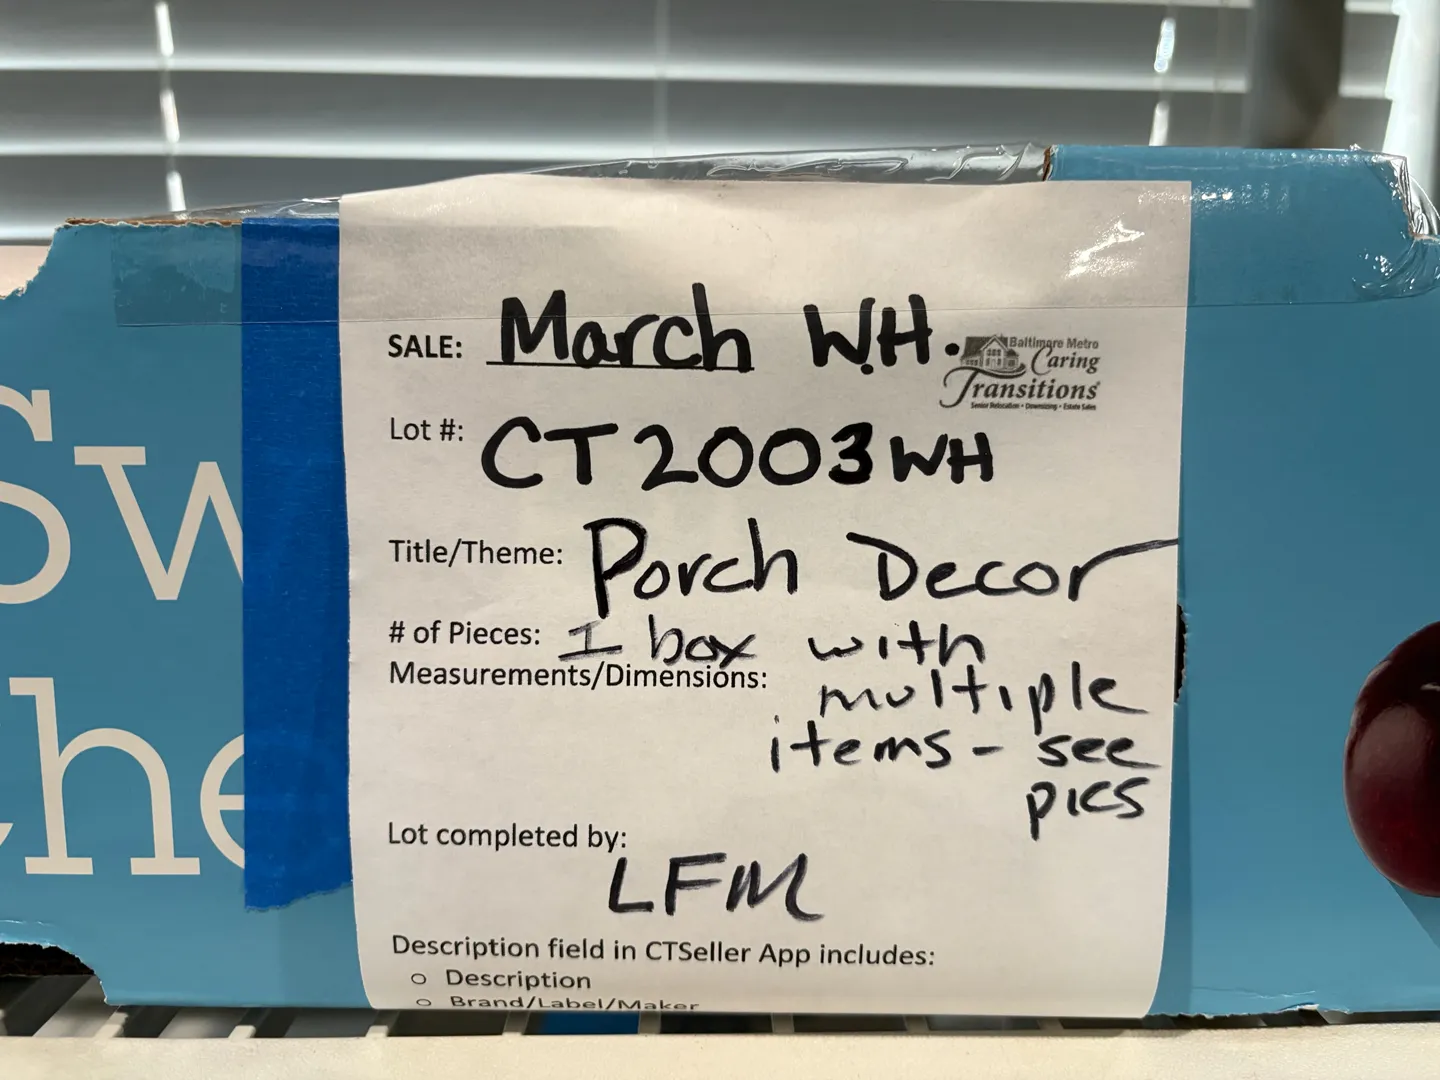 SALE: March W.H.
Baltimore Metro
Caring
Transitions
Senior Relocation • Downsizing • Estate Sales
Lot #: CT2003WH
Title/Theme: Porch Decor
# of Pieces: 1 box with
Measurements/Dimensions: multiple
items - see
pics
Lot completed by:
LFM
Description field in CTSeller App includes:
○ Description
○ Brand/Label/Maker
Sw
che